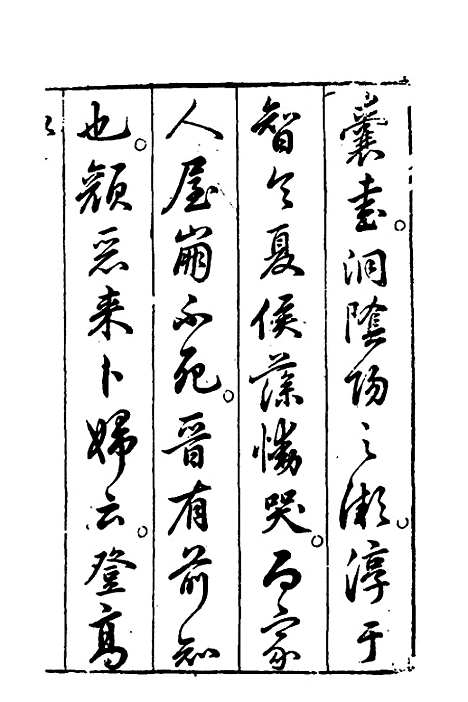 囊書。洞陰陽之微。淳于
智令夏侯藻慟哭。而家
人屋崩不死。晉有前知
也。顏惡來卜婦云。登高